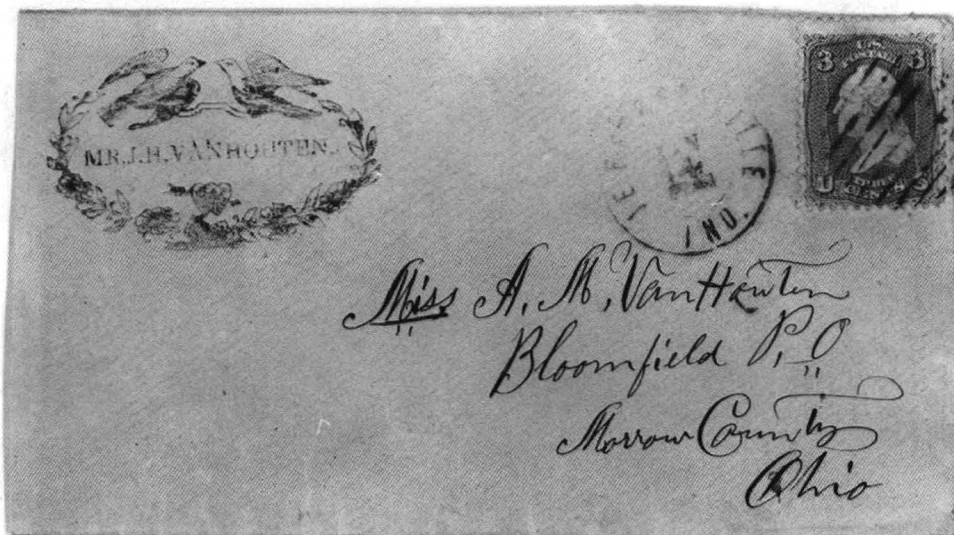 MR. J. H. VANHOUTEN.
3 3
U S
IND.
Miss A. M. VanHouten
Bloomfield P. O
Morrow County
Ohio